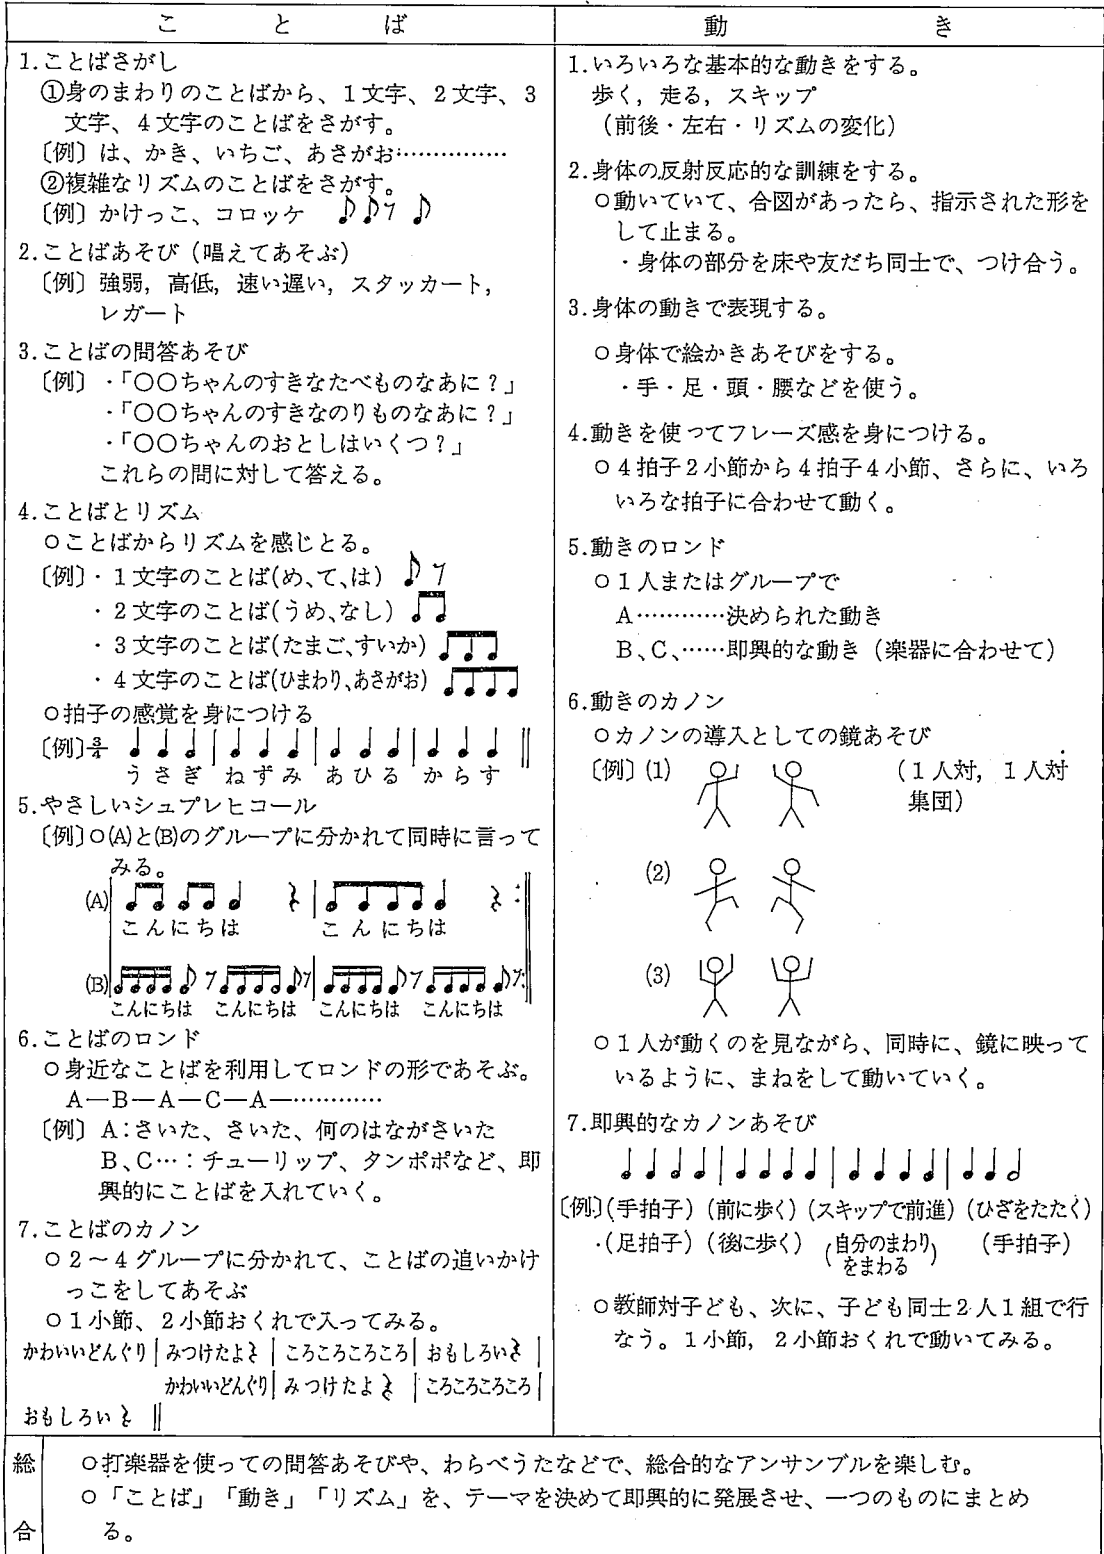 ことば
1.ことばさがし
①身のまわりのことばから、1文字、2文字、3
文字、4文字のことばをさがす。
〔例〕は、かき、いちご、あさがお……………
②複雑なリズムのことばをさがす。
〔例〕かけっこ、コロッケ
2.ことばあそび（唱えてあそぶ）
〔例〕強弱，高低，速い遅い，スタッカート，
レガート
3.ことばの問答あそび
〔例〕・「○○ちゃんのすきなたべものなあに？」
・「○○ちゃんのすきなのりものなあに？」
・「○○ちゃんのおとしはいくつ？」
これらの問に対して答える。
4.ことばとリズム
○ことばからリズムを感じとる。
〔例〕・1文字のことば(め、て、は)
・2文字のことば(うめ、なし)
・3文字のことば(たまご、すいか)
・4文字のことば(ひまわり、あさがお)
○拍子の感覚を身につける
〔例〕
うさぎ ねずみ あひる からす
5.やさしいシュプレヒコール
〔例〕○(A)と(B)のグループに分かれて同時に言って
みる。
(A)
こんにちは こんにちは
(B)
こんにちは こんにちは こんにちは こんにちは
6.ことばのロンド
○身近なことばを利用してロンドの形であそぶ。
A—B—A—C—A—…………
〔例〕A:さいた、さいた、何のはながさいた
B、C…：チューリップ、タンポポなど、即
興的にことばを入れていく。
7.ことばのカノン
○2～4グループに分かれて、ことばの追いかけ
っこをしてあそぶ
○1小節、2小節おくれで入ってみる。
かわいいどんぐり みつけたよ ころころころころ おもしろい
かわいいどんぐり みつけたよ ころころころころ
おもしろい
動き
1.いろいろな基本的な動きをする。
歩く，走る，スキップ
（前後・左右・リズムの変化）
2.身体の反射反応的な訓練をする。
○動いていて、合図があったら、指示された形を
して止まる。
・身体の部分を床や友だち同士で、つけ合う。
3.身体の動きで表現する。
○身体で絵かきあそびをする。
・手・足・頭・腰などを使う。
4.動きを使ってフレーズ感を身につける。
○4拍子2小節から4拍子4小節、さらに、いろ
いろな拍子に合わせて動く。
5.動きのロンド
○1人またはグループで
A…………決められた動き
B、C、……即興的な動き（楽器に合わせて）
6.動きのカノン
○カノンの導入としての鏡あそび
〔例〕(1) （1人対，1人対
集団）
(2)
(3)
○1人が動くのを見ながら、同時に、鏡に映って
いるように、まねをして動いていく。
7.即興的なカノンあそび
〔例〕(手拍子) (前に歩く) (スキップで前進) (ひざをたたく)
・(足拍子) (後に歩く) (自分のまわりをまわる) (手拍子)
○教師対子ども、次に、子ども同士2人1組で行
なう。1小節，2小節おくれで動いてみる。
総合
○打楽器を使っての問答あそびや、わらべうたなどで、総合的なアンサンブルを楽しむ。
○「ことば」「動き」「リズム」を、テーマを決めて即興的に発展させ、一つのものにまとめ
る。